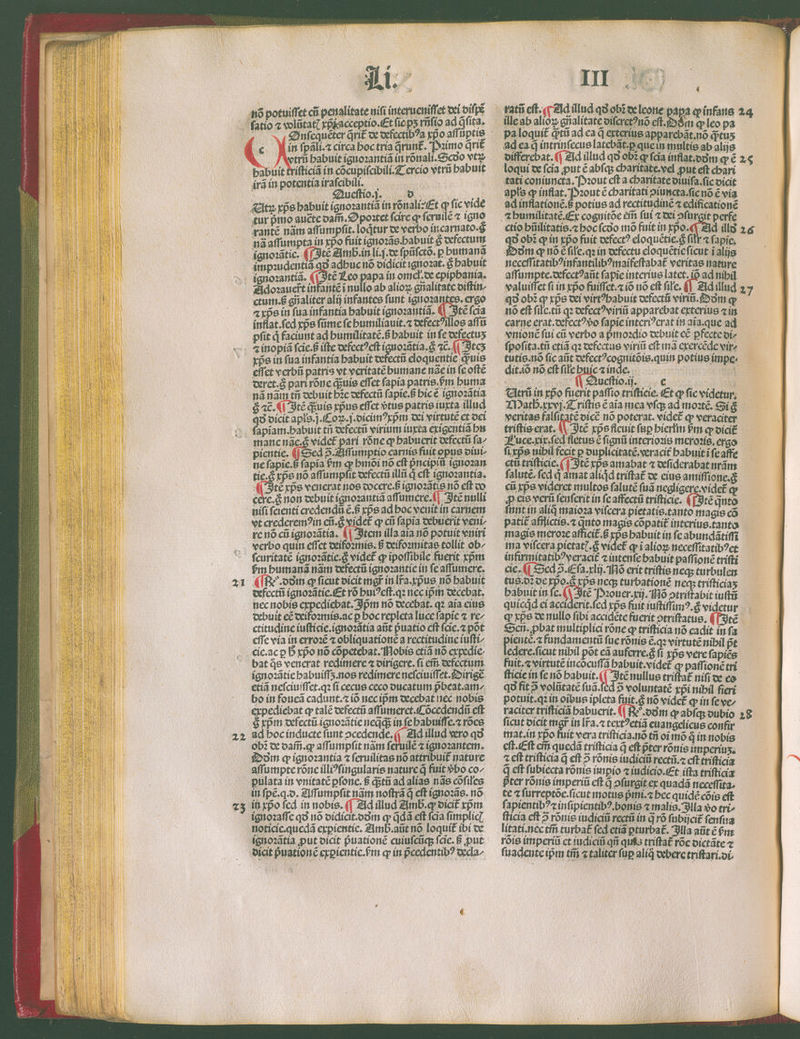 Li. III
nõ potuiſſet cũ penalitate niſi interueniſſet dei diſpẽ
ſatio ⁊ volũtat xp̃i acceptio. Et ſic pꝫ rñſio ad q̃ſita.
Onſequẽter q̃rit̃ de defectibꝰ a xpo aſſũptis
c in ſpãli. ⁊ circa hoc tria q̃runt̃. Primo q̃rit̃
vtrũ habuit ignorantiã in rõnali. Scðo vtꝝ
habuit triſticiã in cõcupiſcibili. Tercio vtrũ habuit
irã in potentia iraſcibili.
Queſtio.j. d
Utꝝ xp̃s habuit ignorantiã in rõnali: Et ꝙ ſic vide
tur p̃mo aucte dam̃. Oportet ſcire ꝙ ſeruilẽ ⁊ igno
rantẽ nãm aſſumpſit. loq̃tur de verbo incarnato. g̃
nã aſſumpta in xp̃o fuit ignorãs. habuit g̃ defectum
ignorãtie. ¶ Itẽ Amb. in li.j. de ſpũſctõ. p humanã
imprudentiã qð adhuc nõ didicit ignorat. g̃ habuit
ignorantiã. ¶ Itẽ Leo papa in omel. de epiphania.
Adorauer̃t infantẽ i nullo ab alioꝝ gñalitate diſtin-
ctum. ſꝫ gñaliter alij infantes ſunt ignorantes. ergo
⁊ xp̃s in ſua infantia habuit ignorantiã. ¶ Itẽ ſcia
inflat. ſed xp̃s ſũme ſe humiliauit. ⁊ defectꝰ illos aſſũ
pſit q̃ faciunt ad humilitatẽ. ſꝫ habuit in ſe defectuꝫ
⁊ inopiã ſcie. ſꝫ iſte defectꝰ eſt ignorãtia. g̃ ⁊c̃. ¶ Iteꝫ
xp̃s in ſua infantia habuit defectũ eloquentie q̃uis
eſſet verbũ patris vt veritatẽ humane nãe in ſe oſtẽ
deret. g̃ pari rõne q̃uis eſſet ſapia patris. ſm̃ huma
nã nãm tñ debuit h̃re defectũ ſapie. ſꝫ hic ẽ ignorãtia
g̃ ⁊c̃. ¶ Itẽ q̃uis xp̃s eſſet v̓tus patris iuxta illud
qð dicit apl̃s.j. Coꝝ.j. dicimꝰ xp̃m dei virtutẽ et dei
ſapiam. habuit tñ defectũ virium iuxta exigentiã hu
mane nãe. g̃ videt̃ pari rõne ꝙ habuerit defectũ ſa-
pientie. ¶ Sed ↄ̃. Aſſumptio carnis fuit opus diui-
ne ſapie. ſꝫ ſapia ſm̃ ꝙ hmõi nõ eſt p̃ncipiũ ignoran
tie. g̃ xp̃s nõ aſſumpſit defectũ illũ q̃ eſt ignorantia.
¶ Itẽ xp̃s venerat nos docere. ſꝫ ignorãtis nõ eſt do
cere. g̃ non debuit ignorantiã aſſumere. ¶ Itẽ nulli
niſi ſcienti credendũ ẽ. ſꝫ xp̃s ad hoc venit in carnem
vt crederemꝰ in eũ. g̃ videt̃ ꝙ cũ ſapia debuerit veni-
re nõ cũ ignorãtia. ¶ Item illa aia nõ potuit vniri
verbo quin eſſet deiformis. ſꝫ deiformitas tollit ob-
ſcuritatẽ ignorãtie. g̃ videt̃ ꝙ ipoſſibile fuerit xp̃m
ſm̃ humanã nãm defectũ ignorantie in ſe aſſumere.
21 ¶ R̃. dõm ꝙ ſicut dicit mgr̃ in lr̃a. xp̃us nõ habuit
defectũ ignorãtie. Et rõ huiꝰ eſt. qꝛ nec ip̃m decebat.
nec nobis expediebat. Ip̃m nõ decebat. qꝛ aia eius
debuit eẽ deiformis. ac p hoc repleta luce ſapie ⁊ re-
ctitudine iuſticie. ignorãtia aũt p̃uatio eſt ſcie. ⁊ põt
eſſe via in errorẽ ⁊ obliquationẽ a rectitudine iuſti-
cie. ac p ħ xp̃o nõ cõpetebat. Nobis etiã nõ expedie-
bat q̃s venerat redimere ⁊ dirigere. ſi em̃ defectum
ignorãtie habuiſſꝫ. nos redimere neſciuiſſet. Dirige̓
etiã neſciuiſſet. qꝛ ſi cecus ceco ducatum p̃beat. am-
bo in foueã cadunt. ⁊ iõ nec ip̃m decebat nec nobis
expediebat ꝙ talẽ defectũ aſſumeret. Cõcedendũ eſt
g̃ xp̃m defectũ ignorãtie neq̃q̃ in ſe habuiſſe. ⁊ rões
22 ad hoc inducte ſunt ↄcedende. ¶ Ad illud vero qð
obẽ de dam̃. ꝙ aſſumpſit nãm ſeruilẽ ⁊ ignorantem.
Dõm ꝙ ignorantia ⁊ ſeruilitas nõ attribuit̃ nature
aſſumpte rõne illiꝰ ſingularis nature q̃ fuit v̓bo co-
pulata in vnitatẽ pſone. ſꝫ q̃tũ ad alias nãs cõſiles
in ſpẽ. q.d. Aſſumpſit nãm noſtrã q̃ eſt ignorãs. nõ
23 in xp̃o ſed in nobis. ¶ Ad illud Amb. ꝙ dicit xp̃m
ignoraſſe qð nõ didicit. dõm ꝙ q̃dã eſt ſcia ſimplicꝭ
noticie. quedã expientie. Amb. aũt nõ loquit̃ ibi de
ignorãtia ꝓut dicit p̃uationẽ cuiuſcũqꝫ ſcie. ſꝫ ꝓut
dicit p̃uationẽ expientie. ſm̃ ꝙ in p̃cedentibꝰ decla-
ratũ eſt. ¶ Ad illud qð obẽ de leone papa ꝙ infans 24
ille ab alioꝝ gñalitate diſcretꝰ nõ eſt. Dõm ꝙ leo pa
pa loquit̃ q̃tũ ad ea q̃ exterius apparebãt. nõ q̃tuꝫ
ad ea q̃ intrinſecus latebãt. p que in multis ab alijs
differebat. ¶ Ad illud qð obẽ ꝙ ſcia inflat. dõm ꝙ ẽ 25
loqui de ſcia ꝓut ẽ abſqꝫ charitate. vel ꝓut eſt chari
tati coniuncta. Prout eſt a charitate diuiſa. ſic dicit
apl̃s ꝙ inflat. Prout ẽ charitati ↄiuncta. ſic nõ ẽ via
ad inflationẽ. ſꝫ potius ad rectitudinẽ ⁊ edificationẽ
⁊ humilitatẽ. Ex cognitõe em̃ ſui ⁊ dei ↄſurgit perfe
ctio hũilitatis. ⁊ hoc ſcðo mõ fuit in xp̃o. ¶ Ad illð 26
qð obẽ ꝙ in xp̃o fuit defectꝰ eloquẽtie. g̃ ſil̃r ⁊ ſapie.
Dõm ꝙ nõ ẽ ſil̃e. qꝛ in defectu eloquẽtie ſicut i alijs
neceſſitatibꝰ infantilibꝰ maifeſtabat̃ veritas nature
aſſumpte. defectꝰ aũt ſapie interius latet. iõ ad nihil
valuiſſet ſi in xp̃o fuiſſet. ⁊ iõ nõ eſt ſil̃e. ¶ Ad illud 27
qð obẽ ꝙ xp̃s dei virtꝰ habuit defectũ viriũ. Dõm ꝙ
nõ eſt ſil̃e. tũ qꝛ defectꝰ viriũ apparebat exterius ⁊ in
carne erat. defectꝰ v̓o ſapie interiꝰ erat in aia. que ad
vnionẽ ſui cũ verbo a p̃mordio debuit eẽ pfecte di-
ſpoſita. tũ etiã qꝛ defectus viriũ eſt mã exercẽde vir-
tutis. nõ ſic aũt defectꝰ cognitõis. quin potius impe-
dit. iõ nõ eſt ſil̃e huic ⁊ inde.
¶ Queſtio.ij. e
Utrũ in xp̃o fuerit paſſio triſticie. Et ꝙ ſic videtur.
Math.xxvj. Triſtis ẽ aia mea vſqꝫ ad mortẽ. Si g̃
veritas falſitatẽ dice̓ nõ poterat. videt̃ ꝙ veraciter
triſtis erat. ¶ Itẽ xp̃s fleuit ſup hierl̃m ſm̃ ꝙ dicit̃
Luce.xix. ſed fletus ẽ ſignũ interioris meroris. ergo
ſi xp̃s nihil fecit p duplicitatẽ. veracit̃ habuit i ſe affe
ctũ triſticie. ¶ Itẽ xp̃s amabat ⁊ deſiderabat nr̃am
ſalutẽ. ſed q̃ amat aliq̃d triſtat̃ de eius amiſſione. g̃
cũ xp̃s videret multos ſalutẽ ſuã negligere. videt̃ ꝙ
ꝓ eis verũ ſenſerit in ſe affectũ triſticie. ¶ Itẽ q̃nto
ſunt in aliq̃ maiora viſcera pietatis. tanto magis cõ
patit̃ afflictis. ⁊ q̃nto magis cõpatit̃ interius. tanto
magis merore afficit̃. ſꝫ xp̃s habuit in ſe abundãtiſſi
ma viſcera pietatꝭ. g̃ videt̃ ꝙ i alioꝝ neceſſitatibꝰ et
infirmitatibꝰ veracit̃ ⁊ intenſe habuit paſſionẽ triſti
cie. ¶ Sed ↄ̃. Eſa.xlij. Nõ erit triſtis neqꝫ turbulen
tus. ðꝛ de xp̃o. g̃ xp̃s neqꝫ turbationẽ neqꝫ triſticiaꝫ
habuit in ſe. ¶ Itẽ Prouer.xij. Nõ ↄtriſtabit iuſtũ
quicq̃d ei acciderit. ſed xp̃s fuit iuſtiſſimꝰ. g̃ videtur
ꝙ xp̃s de nullo ſibi accidẽte fuerit ↄtriſtatus. ¶ Itẽ
Señ. ꝓbat multiplici rõne ꝙ triſticia nõ cadit in ſa
piente. ⁊ fundamentũ ſue rõnis ẽ. qꝛ virtutẽ nihil põt
ledere. ſicut nihil põt eã auferre. g̃ ſi xp̃s vere ſapiẽs
fuit. ⁊ virtutẽ incõcuſſã habuit. videt̃ ꝙ paſſionẽ tri
ſticie in ſe nõ habuit. ¶ Itẽ nullus triſtat̃ niſi de eo
qð fit ↄ̃ volũtatẽ ſuã. ſed ↄ̃ voluntatẽ xp̃i nihil fieri
potuit. qꝛ in oĩbus ipleta fuit. g̃ nõ videt̃ ꝙ in ſe ve-
raciter triſticiã habuerit. ¶ R̃. dõm ꝙ abſqꝫ dubio 28
ſicut dicit mgr̃ in lr̃a. ⁊ textꝰ etiã euangelicus confir
mat. in xp̃o fuit vera triſticia. nõ tñ oĩ mõ q̃ in nobis
eſt. Eſt em̃ quedã triſticia q̃ eſt p̃ter rõnis imperiuꝫ.
⁊ eſt triſticia q̃ eſt ↄ̃ rõnis iudiciũ rectũ. ⁊ eſt triſticia
q̃ eſt ſubiecta rõnis impio ⁊ iudicio. Et iſta triſticia
p̃ter rõnis imperiũ eſt q̃ ↄſurgit ex quadã neceſſita-
te ⁊ ſurreptõe. ſicut motus p̃mi. ⁊ hec quidẽ cõis eſt
ſapientibꝰ ⁊ inſipientibꝰ. bonis ⁊ malis. Illa v̓o tri-
ſticia eſt ↄ̃ rõnis iudiciũ rectũ in q̃ rõ ſubijcit̃ ſenſua
litati. nec tm̃ turbat̃ ſed etiã pturbat̃. Illa aũt ẽ ſm̃
rõis imperiũ et iudiciũ qñ quis triſtat̃ rõe dictãte ⁊
ſuadente ip̃m tm̃ ⁊ taliter ſup aliq̃ debere triſtari. di-